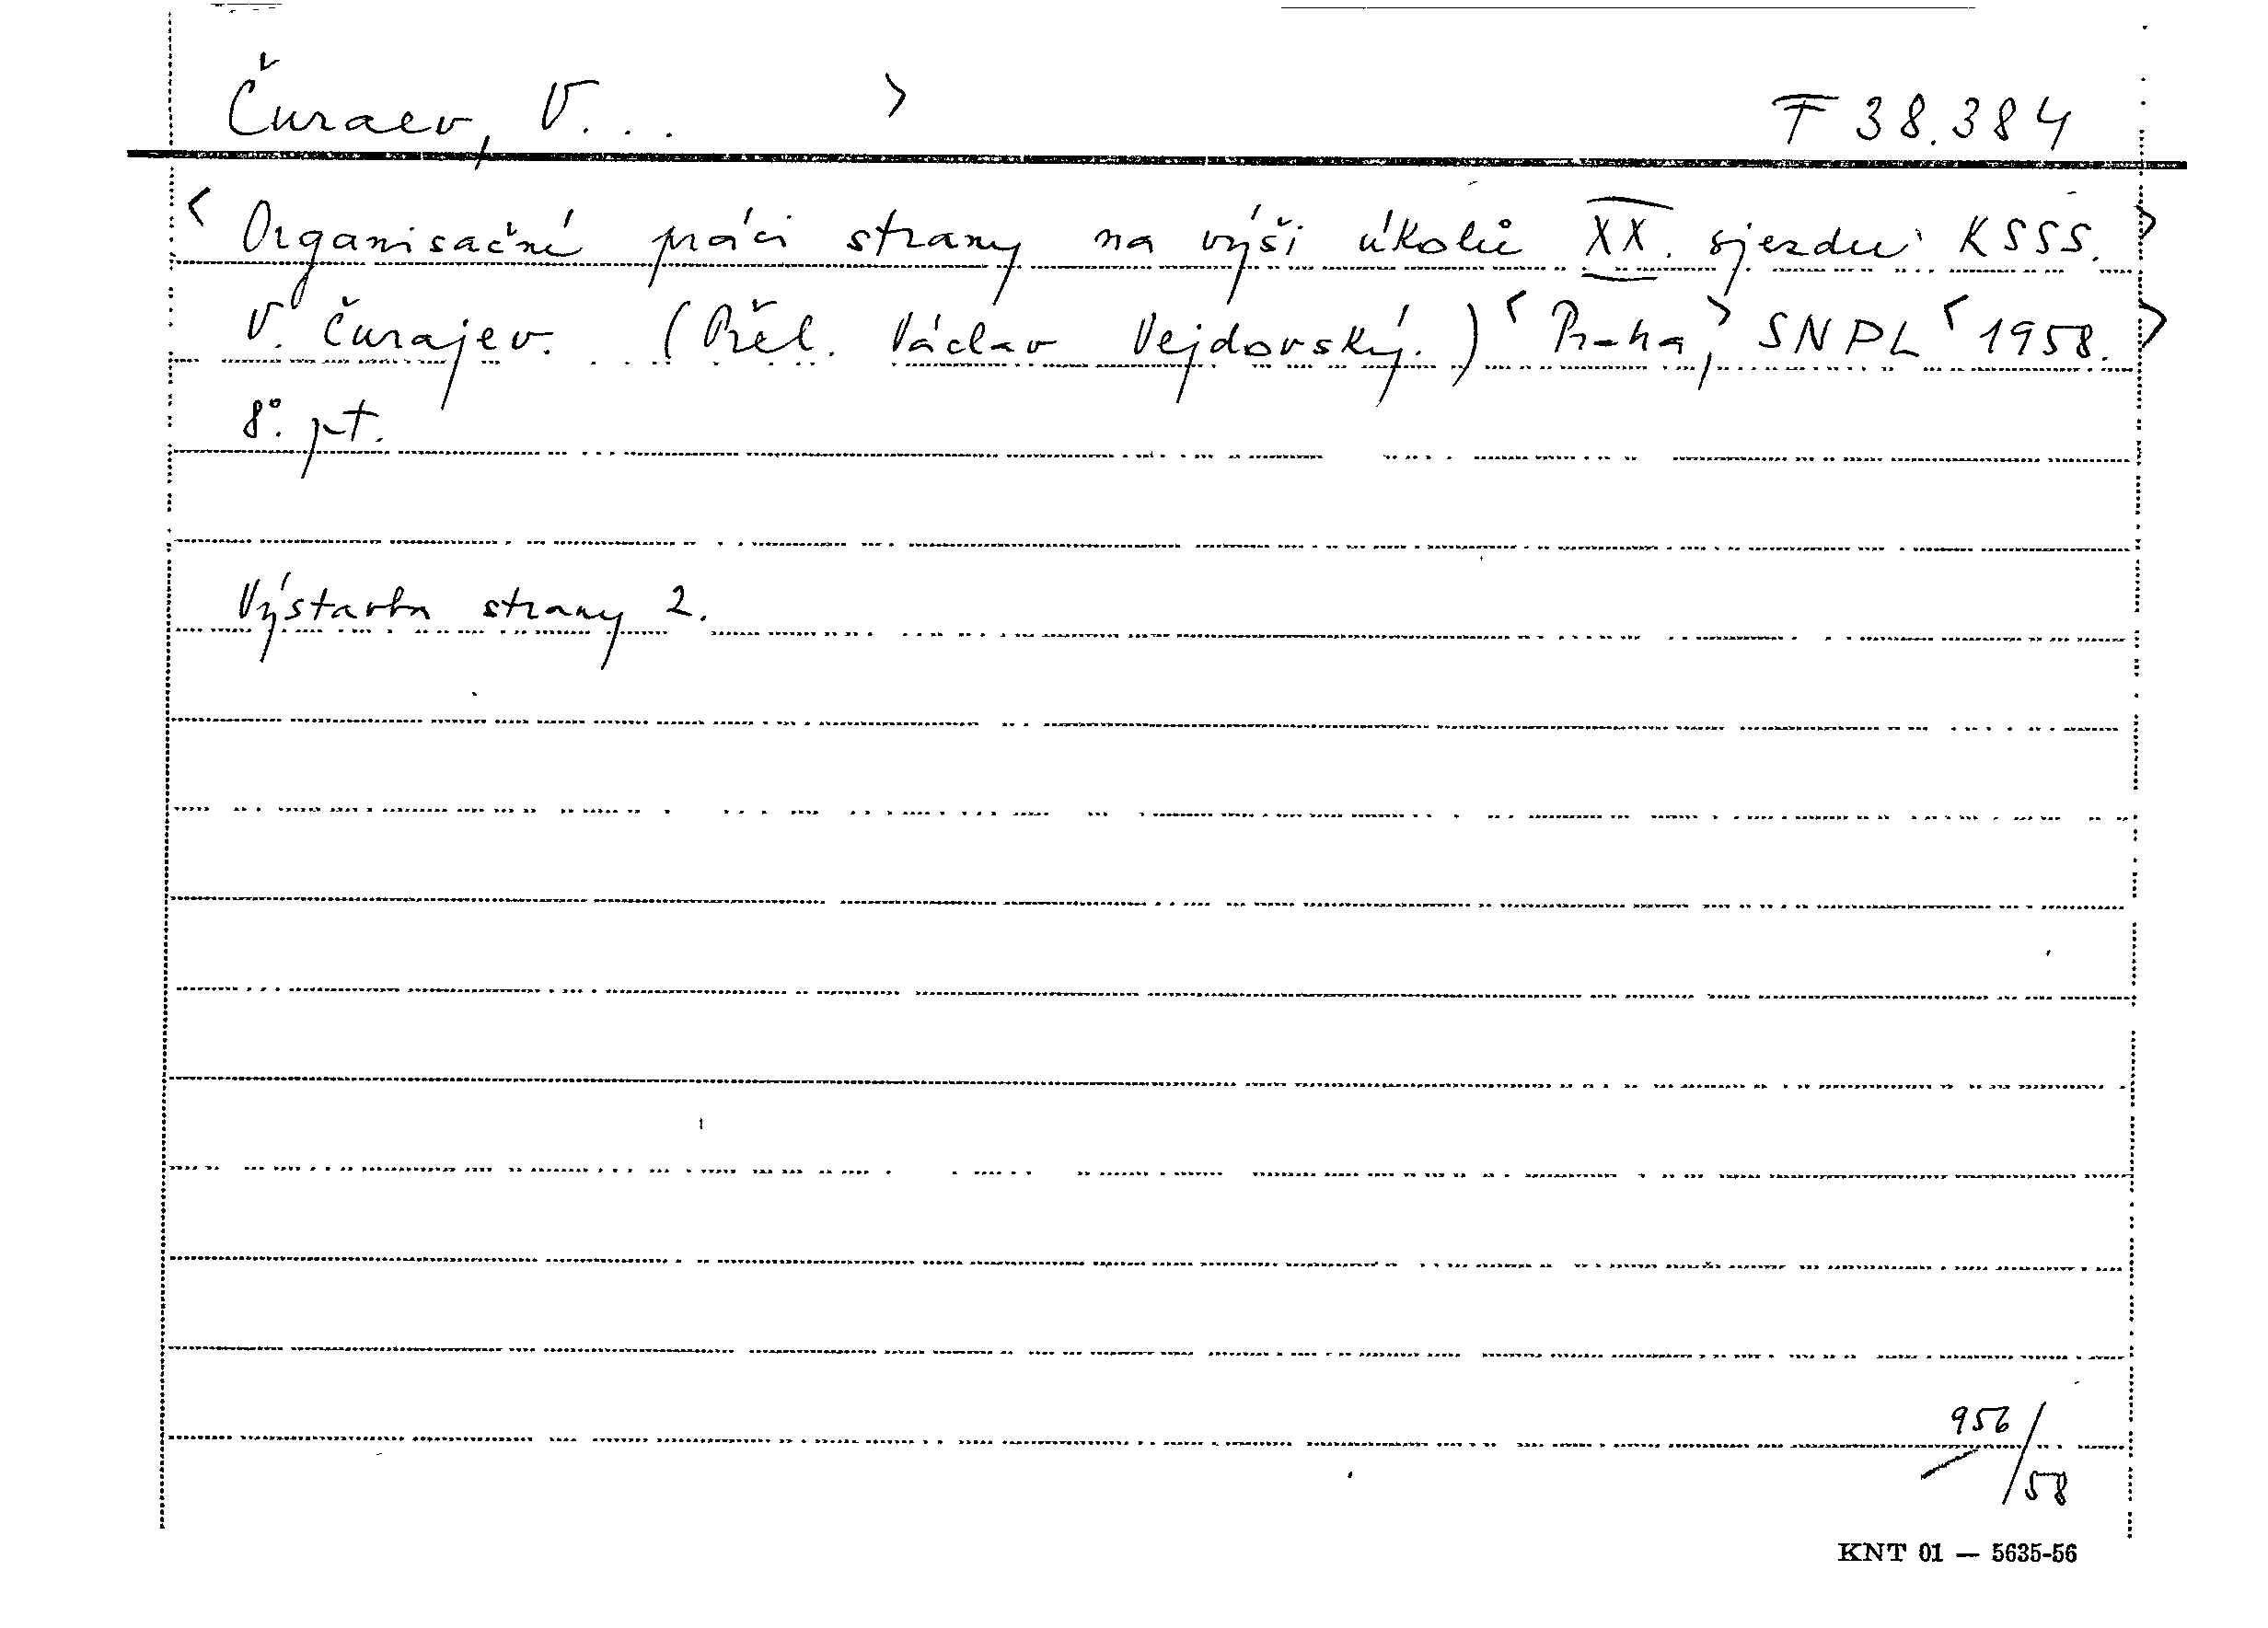 Čuraev, V... > F 38.384
< Organisační práci strany na výši úkolů XX. sjezdu KSSS. >
V. Čurajev. (Přel. Václav Vejdovský.) < Praha, > SNPL < 1958. >
8°. pt.
Výstavba strany 2.
956/58
KNT 01 — 5635-56